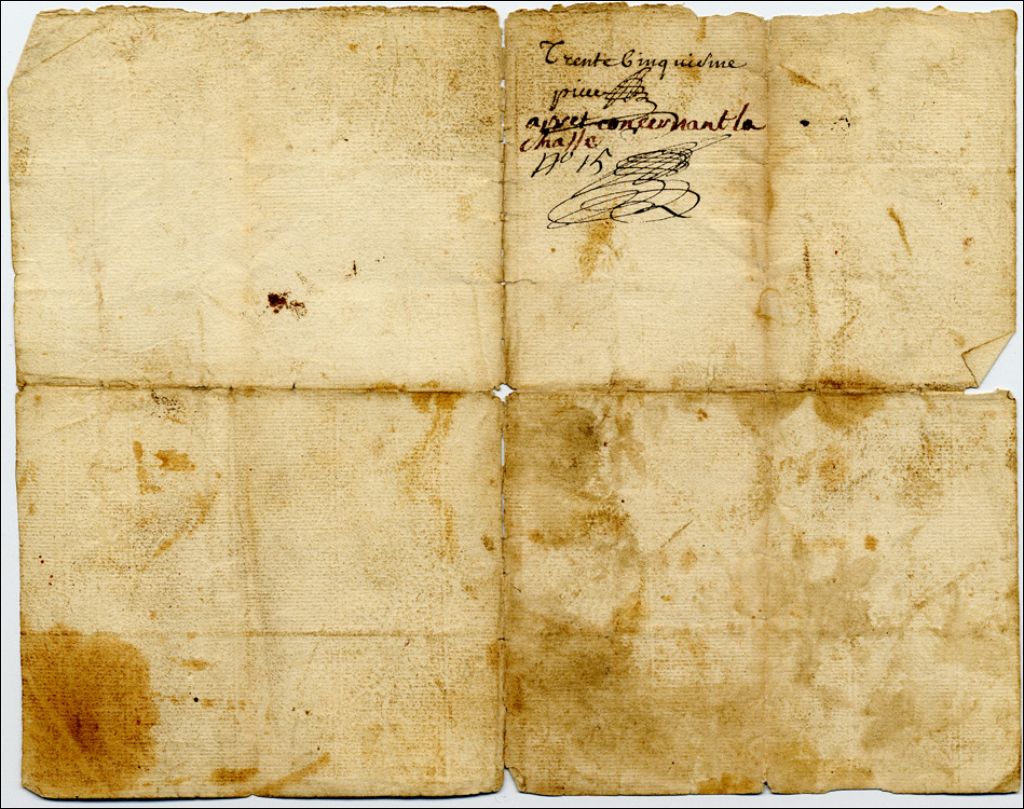 Trente Cinquieme
piece
arret concernant la
chasse
N° 15